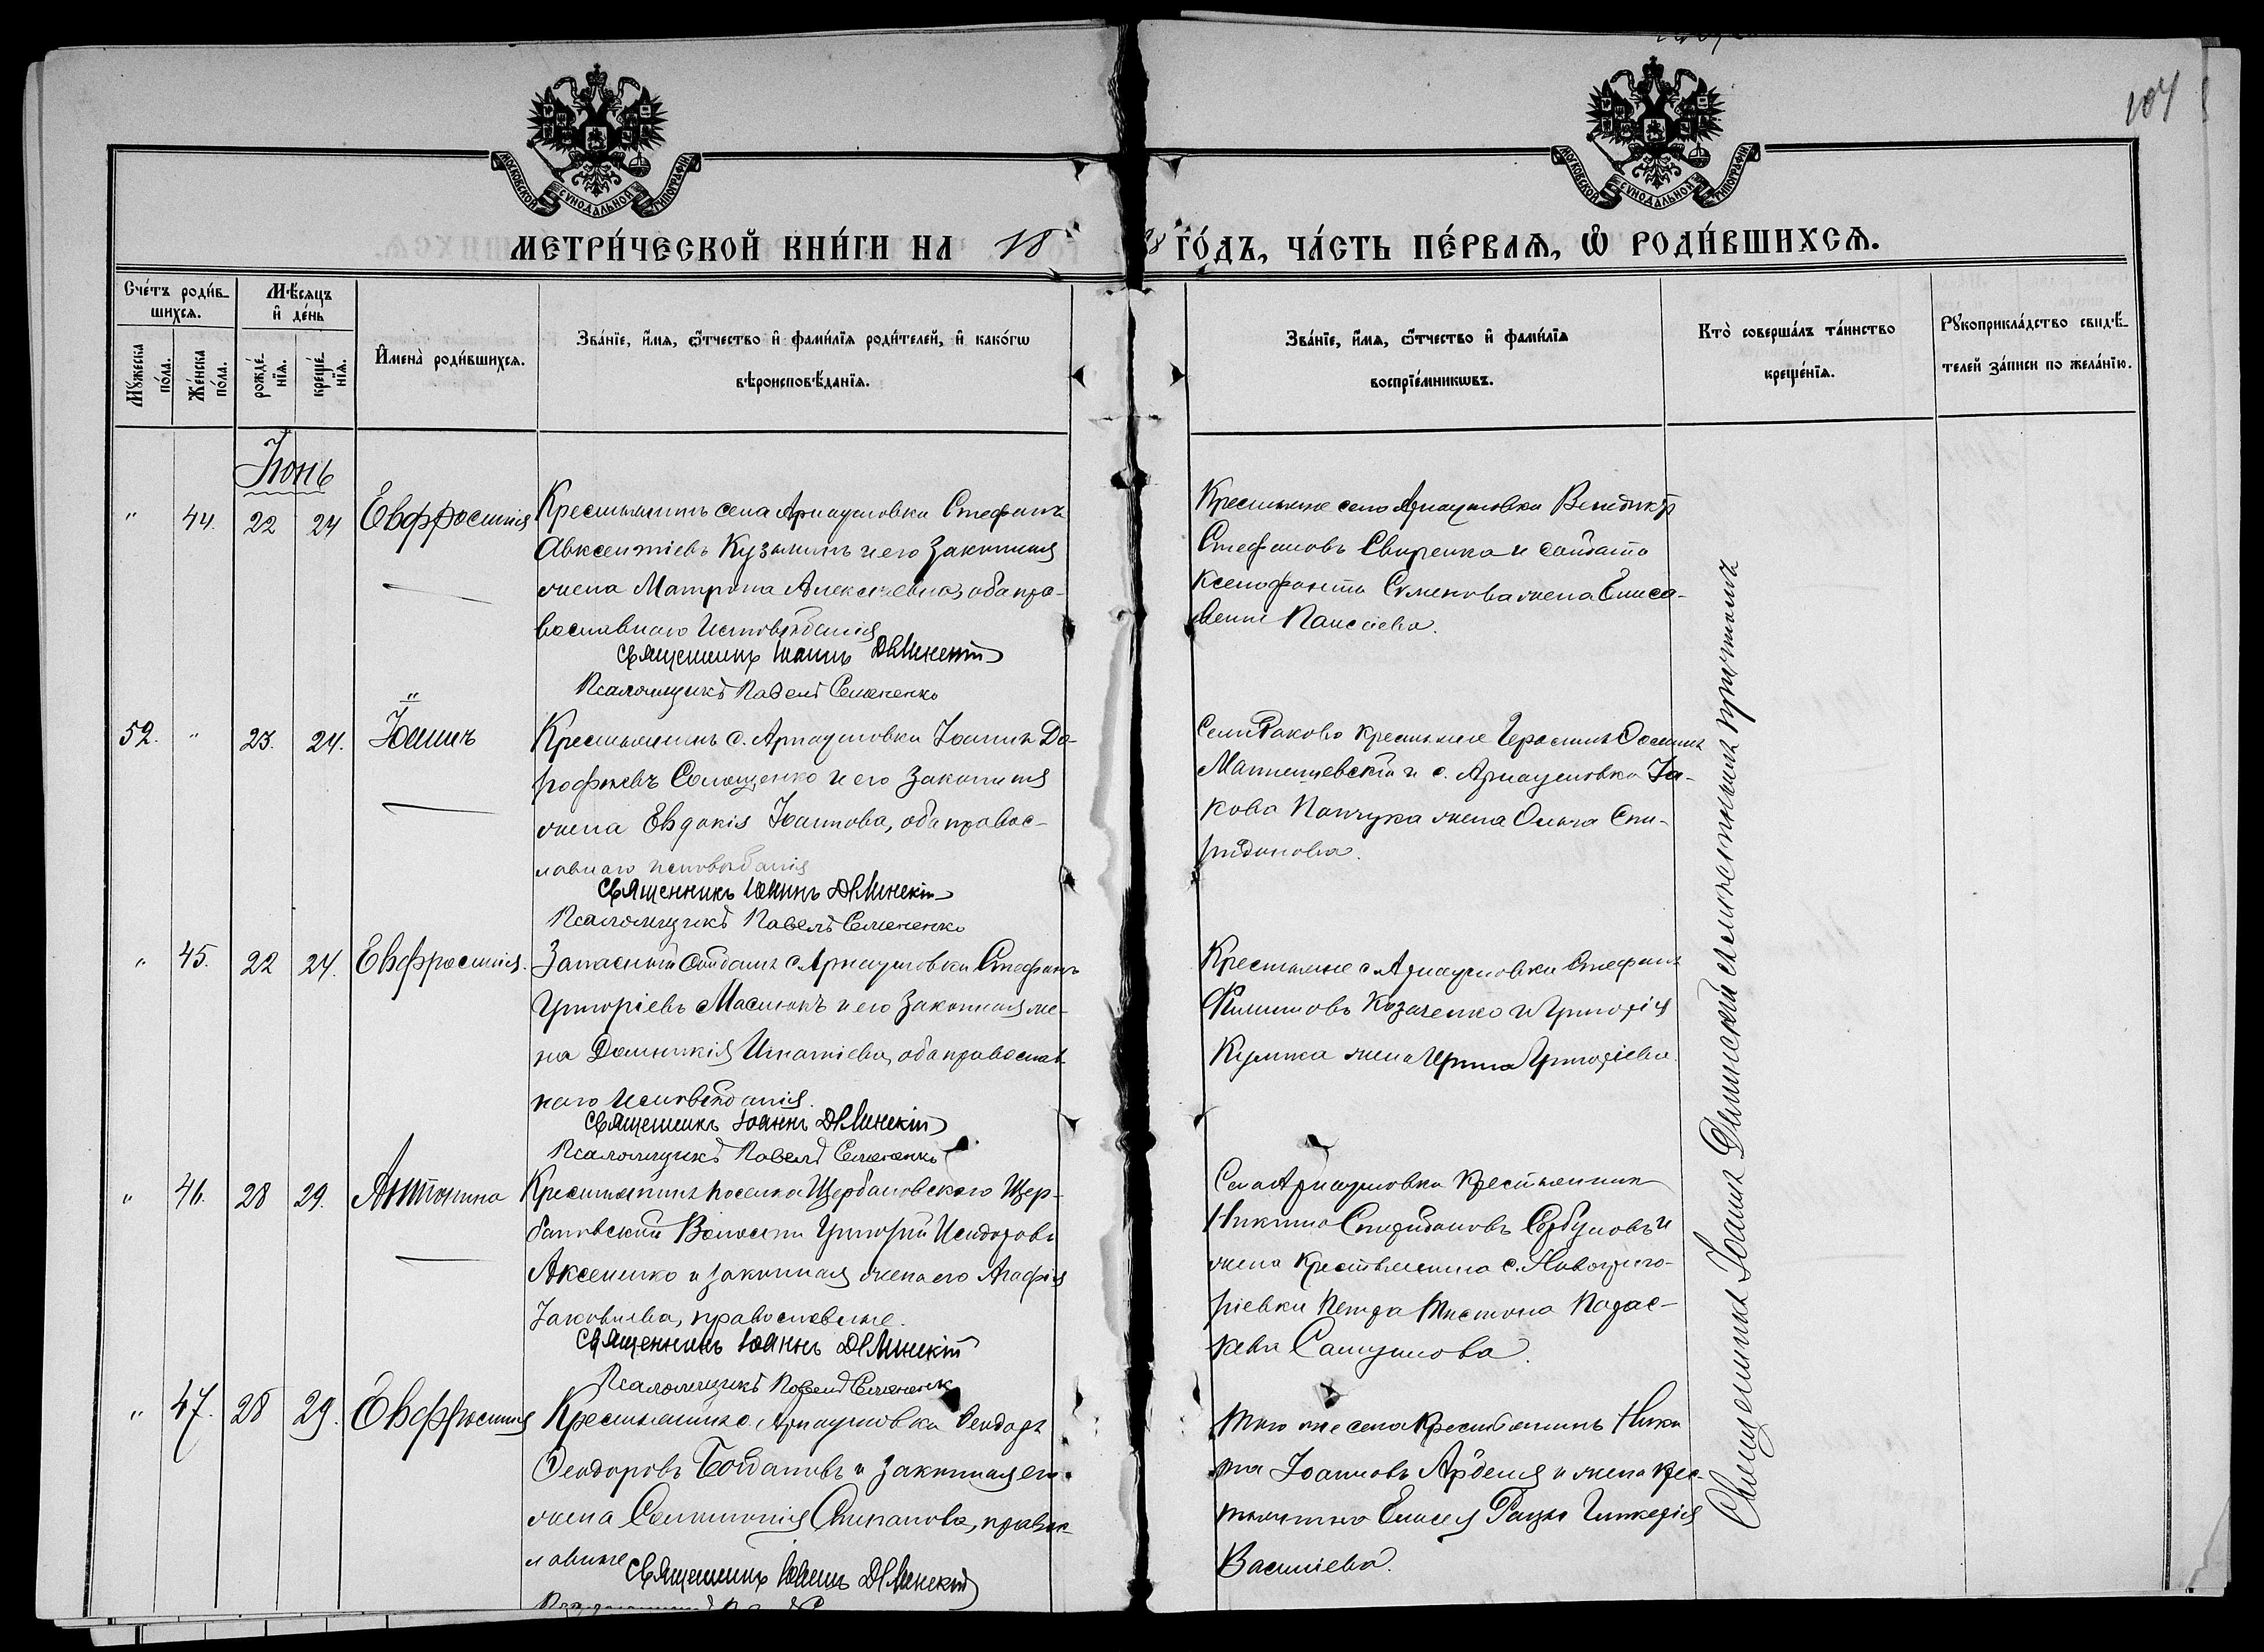 104
МОСКОВСКОЙ СѴНОДАЛЬНОЙ ТИПОГРАФІИ
МОСКОВСКОЙ СѴНОДАЛЬНОЙ ТИПОГРАФІИ
МЕТРИ́ЧЕСКОЙ КНИ́ГИ НА 18 8 ГО́ДЪ, ЧА́СТЬ ПЕ́РВАѦ, Ѡ҆ РОДИ́ВШИХСѦ.
Сче́тъ роди́в-
шихсѧ.
Мꙋжеска по́ла.
Же́нска по́ла.
Мѣ́сяцъ
и҆ де́нь
рожде́-
нїѧ.
креще́-
нїѧ.
И҆мена̀ роди́вшихсѧ.
Зва́нїе, и҆́мѧ, ѻ҆́тчество и҆ фами́лїѧ роди́телей, и҆ како́гѡ
вѣроисповѣ́данїѧ.
Зва́нїе, и҆́мѧ, ѻ҆́тчество и҆ фами́лїѧ
воспрїе́мникѡвъ.
Кто̀ соверша́лъ та́инство
креще́нїѧ.
Рꙋкоприкла́дство свидѣ́-
телей за́писи по жела́нїю.
Іюнь
" 44. 22 24 Евфросинія
Крестьянинъ села Арнаутовки Стефанъ
Авксентіевъ Кузьминъ и его законная
жена Матрона Алексіева, оба пра-
вославнаго исповѣданія
Священникъ Іоаннъ Длинскій
Псаломщикъ Павелъ Семененко
Крестьяне села Арнаутовки Венедиктъ
Стефановъ Свиренко и солдата
Ксенофонта Семенова жена Елиса-
вета Паисіева.
52. " 23. 24. Іоаннъ
Крестьянинъ с. Арнаутовки Іоаннъ До-
рофеевъ Солощенко и его законная
жена Евдокія Іоаннова, оба правос-
лавнаго исповѣданія
Священникъ Іоаннъ Длинскій
Псаломщикъ Павелъ Семененко
Села Ракова крестьяне Герасимъ
и с. Арнаутовки Іа-
кова жена Ольга Спи-
ридонова.
" 45. 22 24. Евфросинія.
Запасный солдатъ с. Арнаутовки Стефанъ
Григоріевъ Масюкъ и его законная же-
на Домникія Игнатіева, оба православ-
наго исповѣданія.
Священникъ Іоаннъ Длинскій
Псаломщикъ Павелъ Семененко
Крестьяне с. Арнаутовки Стефанъ
Филиповъ Козаченко и Григорія
Кулика жена Ирина Григоріева.
" 46. 28 29. Антонина
Крестьянинъ поселка Щербановскаго Щер-
бановской Волости Григорій Исидоровъ
Аксененко и законная жена его Агафія
Іаковлева, православные.
Священникъ Іоаннъ Длинскій
Псаломщикъ Павелъ Семененко
Села Арнаутовки крестьянинъ
Никита Спиридоновъ Горбуновъ и
жена крестьянина с. Новогриго-
ріевки Петра Парас-
кева Самуилова.
" 47. 28 29. Евфросинія
Крестьянинъ с. Арнаутовки Ѳеодоръ
Ѳеодоровъ Богдановъ и законная его
жена Соломонія Степанова, правос-
лавные
Священникъ Іоаннъ Длинскій
Того же села крестьянинъ Ники-
та Іоанновъ и жена крес-
тьянина Елисея Гликерія
Василіева.
Священникъ Іоаннъ Длинскій съ причтомъ